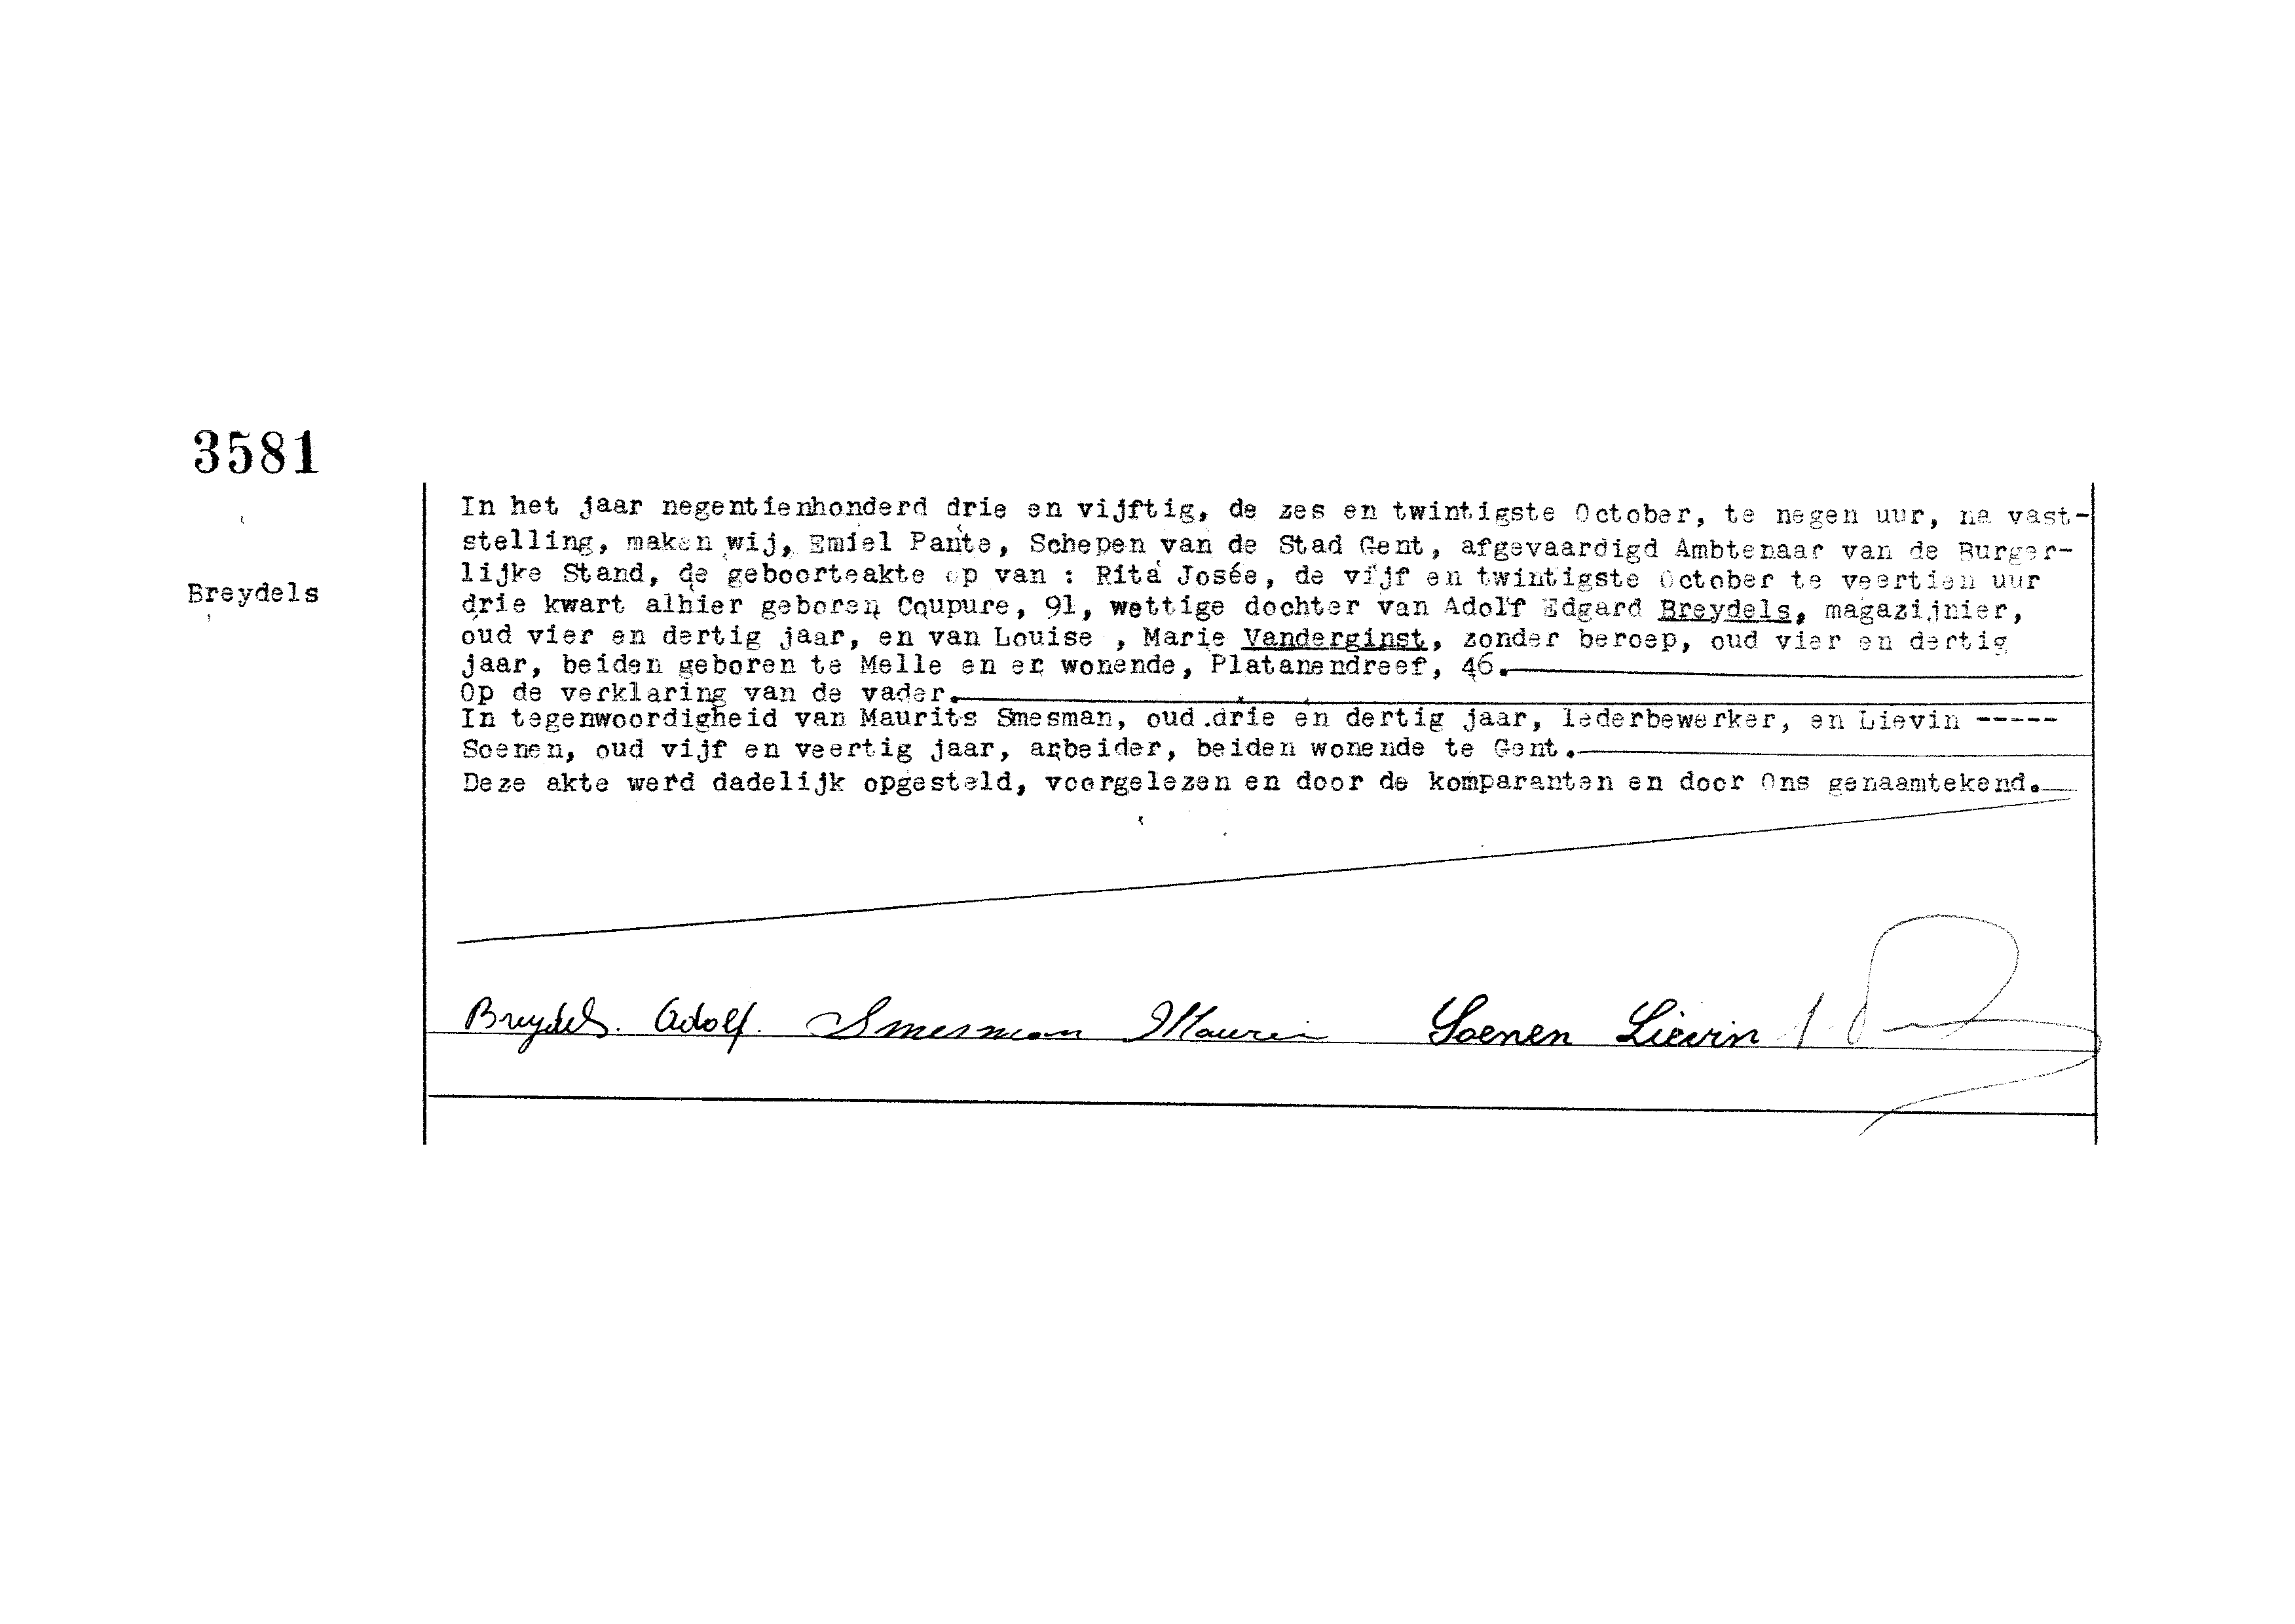 3581
Breydels
In het jaar negentienhonderd drie en vijftig, de zes en twintigste October, te negen uur, na vast-
stelling, maken wij, Emiel Pante, Schepen van de Stad Gent, afgevaardigd Ambtenaar van de Burger-
lijke Stand, de geboorteakte op van : Rita Josée, de vijf en twintigste October te veertien uur
drie kwart alhier geboren Coupure, 91, wettige dochter van Adolf Edgard Breydels, magazijnier,
oud vier en dertig jaar, en van Louise , Marie Vanderginst, zonder beroep, oud vier en dertig
jaar, beiden geboren te Melle en er wonende, Platanendreef, 46.
Op de verklaring van de vader.
In tegenwoordigheid van Maurits Smesman, oud drie en dertig jaar, lederbewerker, en Lievin -----
Soenen, oud vijf en veertig jaar, arbeider, beiden wonende te Gent.
Deze akte werd dadelijk opgesteld, voorgelezen en door de komparanten en door Ons genaamtekend.
Breydels. Adolf. Smesman Soenen Lievin